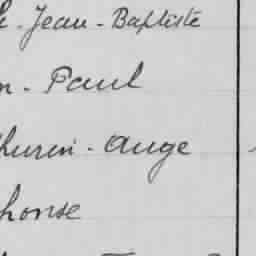 - Jean - Baptiste
n - Paul
hurin - Ange
honse